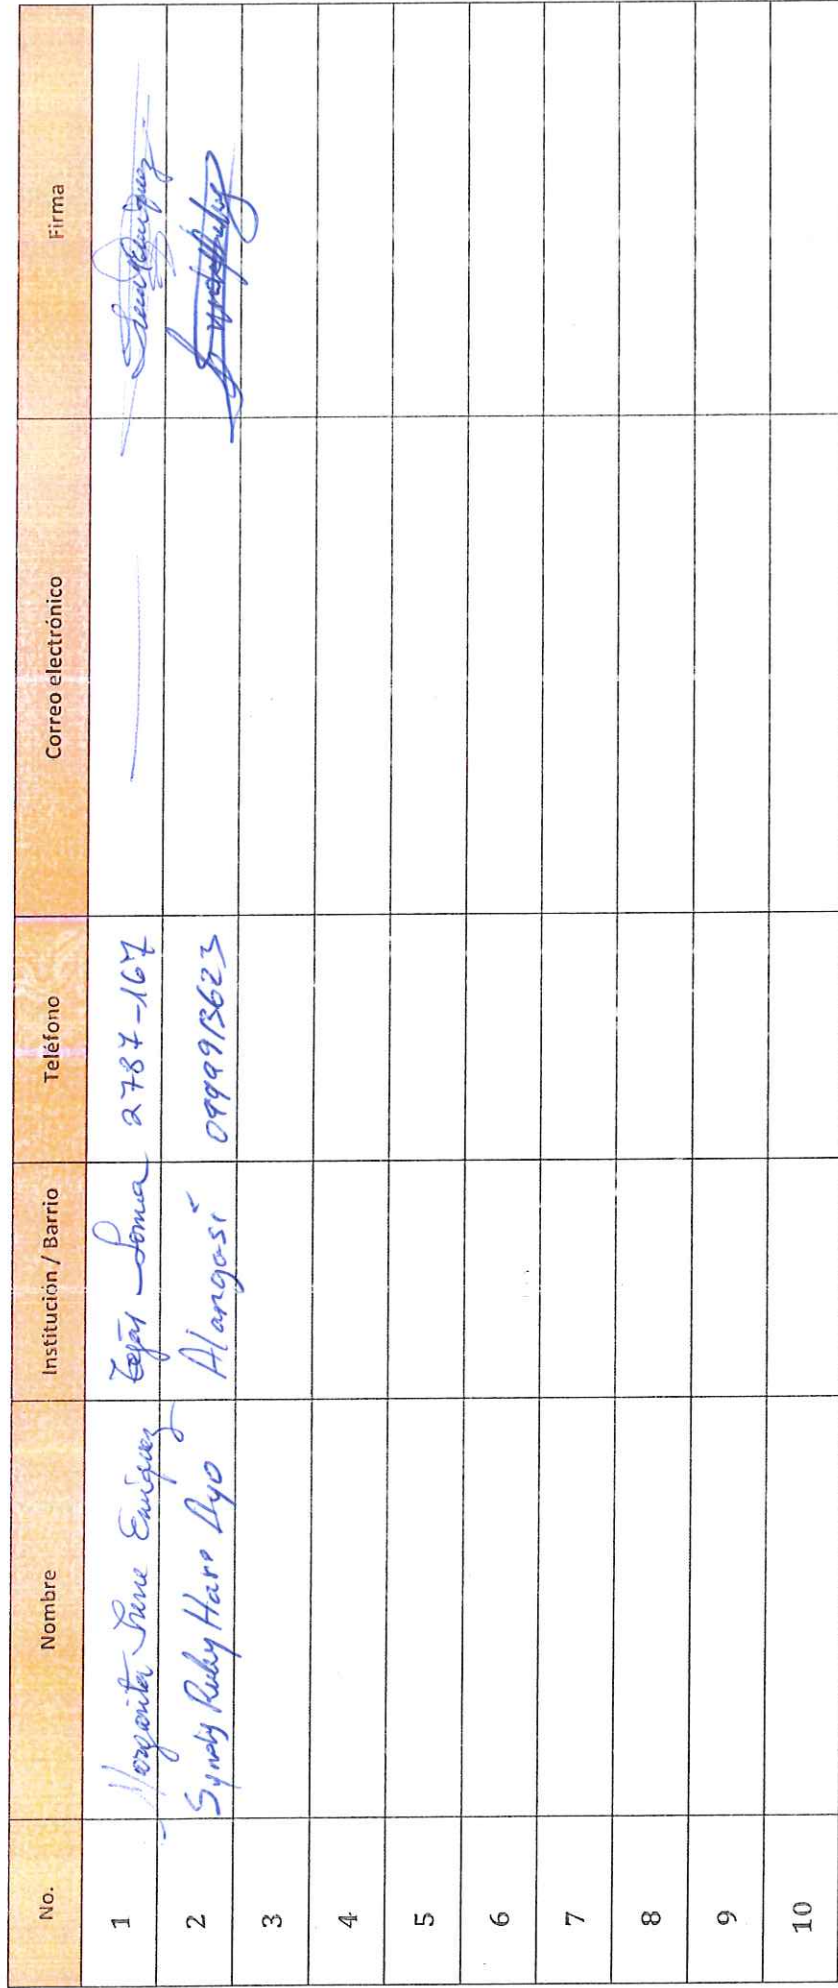 No. Nombre Institución / Barrio Teléfono Correo electrónico Firma
1 Margarita Irene Enriquez Loma 2787-167
2 Syndy Ruby Haro Ayo Alangasí 0999913623
3
4
5
6
7
8
9
10